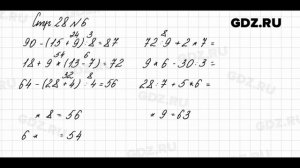 GDZ.RU
Стр. 28 № 6
24 3
90 - (15 + 9) : 8 = 87
54 6
18 + 9 * (13 - 7) = 72
32 8
64 - (28 + 4) : 4 = 56
* 8 = 56
6 * = 54
8
72 : 9 + 2 * 7 =
9 * 6 - 30 : 3 =
28 : 7 + 5 * 6 =
* 9 = 63